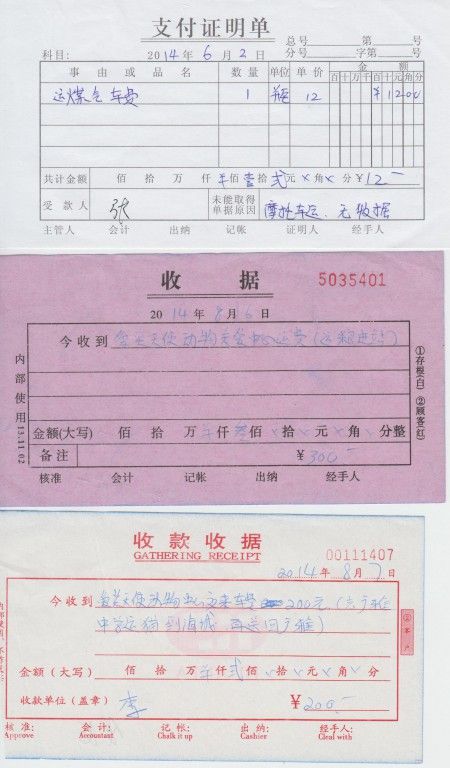 支付证明单
总号 第 号
科目: 2014年6月2日 分号 字第 号
事由或品名 数量 单位 单价 金额
百十万千百十元角分
运煤气车费 1 12 ¥1200
共计金额 佰拾万仟佰壹拾贰元×角×分¥12-
受款人 张 未能取得单据原因 摩托车运.无收据
主管人 会计 出纳 记帐 证明人 经手人
收据 5035401
2014年8月6日
今收到 天使动物 运费(运粮进站)
金额(大写) 佰拾万仟叁佰×拾×元×角×分整
备注 ¥300-
核准 会计 记帐 出纳 经手人
内部使用 13.11.02
①存根(白) ②顾客(红)
收款收据
GATHERING RECEIPT 00111407
2014年8月7日
今收到 天使动物 来车费 200元.(去
中 运猫到
金额(大写) 佰拾万仟贰佰×拾×元×角×分
收款单位(盖章) 李 ¥200.-
核准: 会计: 记帐: 出纳: 经手人:
Approve Accountant Chalk it up Cashier Cleal with